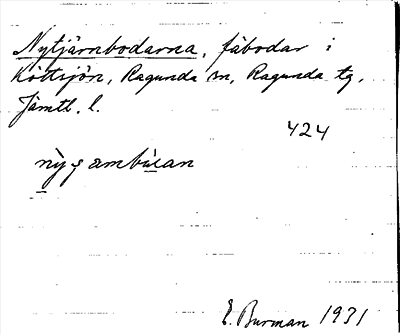 Nytjärnbodarna, fäbodar i
Köttsjön, Ragunda sn, Ragunda tg,
Jämtl. l.
424
E. Burman 1931